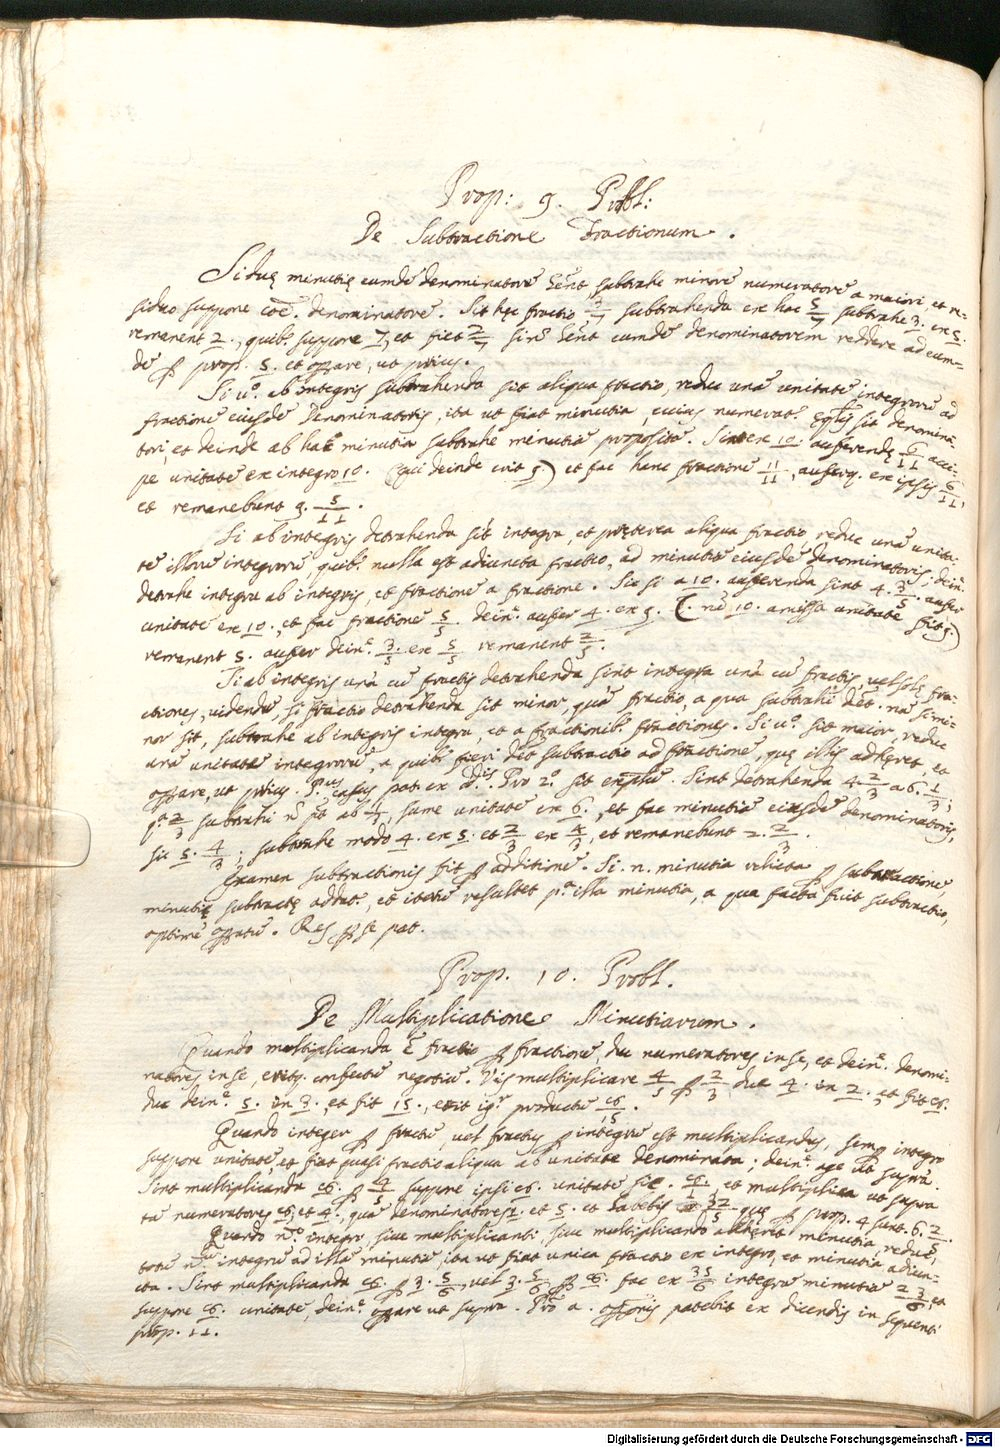 Prop: 9. Probl:
De Subtractione Fractionum.
Si duę minutię eumdē denominatorē hēnt, subtrahe minorē numeratorē a maiori, et re-
siduo suppone coē. denominatorē. Sit hęc fractio 3/7 subtrahenda ex hac 5/7 subtrahe 3. ex 5.
remanent 2., quib. suppone 7, et fiet 2/7 si nō hēnt eumdē denominatorem reddere ad eum-
dē p prop. 5. et oppare, ut prius.
Si v.º ab integris subtrahenda sit aliqua fractio, reduc unā unitatē integrorū ad
fractionē eiusdē Denominatoris, ita ut fiat minutia, cuius numerat. ęqlis sit denomina-
tori, et deinde ab hac minutia subtrahe minutiā propositā. Sint ex 10. auferendę 6/11 acci-
pe unitatē ex integro 10. (qui deinde erit 9.) et fac hanc fractionē 11/11, auferq. ex ipsis 6/11,
et remanebunt 9. 5/11.
Si ab integris detrahenda sit integra, et pręterea aliqua fractio reduc unā unita-
tē illorū integrorū quib. nulla est adiuncta fractio, ad minutiā eiusdē denominatoris; dein.
detrahe integra ab integris, et fractionē a fractione. Sic si a 10. auferenda sint 4. 3/5. aufer
unitatē ex 10., et fac fractionē 5/5. dein. aufer 4. ex 9. (. nā 10. amissa unitate fit 9.)
remanent 5. aufer dein.e 3/5. ex 5/5 remanent 2/5.
Si ab integris unā cū fractis detrahenda sint integra unā cū fractis, vel solę fra-
ctiones, videndū, si fractio detrahenda sit minor, quā fractio, a qua subtrahi dēt. nā si mi-
nor sit, subtrahe ab integris integra, et a fractionib. fractiones. Si v.º sit maior, reduc
unā unitatē integrorū, a quib. fieri dēt subtractio ad fractionē, quę illis adhęret, et
oppare, ut prius. P.us casus pat. ex d.is Pro 2.º sit exēplū. Sint detrahenda 4 2/3 a 6. 1/3;
q.a 2/3 subtrahi n pōt ab 1/3, sume unitatē ex 6., et fac minutiā eiusdē denominatoris,
sic 5. 4/3; subtrahe modo 4. ex 5. et 2/3 ex 4/3, et remanebunt 2/3.
Examen subtractionis fit p additionē. Si. n. minutia relicta p subtractionē,
minutię subtractę addat., et iterū resultet p.a illa minutia, a qua facta fuit subtractio,
optimē oppatū. Res p se pat.
Prop. 10. Probl.
De Multiplicatione Minutiarum.
Quando multiplicanda ē fractio p fractionē, duc numeratores in se, et dein.e denomi-
natores in se, eritq. confectū negotiū. Vis multiplicare 4/5 p 2/3, duc 4. in 2. et fit 8.
duc dein.e 5. in 3., et fit 15., erit ig.r productū 8/15.
Quando integer p fractū, vel fractus p integrū est multiplicandus, semp integro
suppone unitatē, et fiat quasi fractio aliqua ab unitate denominata; dein.e age ut supra.
Sint multiplicanda 8. p 4/5 suppone ipsi 8. unitatē sic. 8/1, et multiplica ut supra
tā numeratores 8, et 4., quā denominatores 1. et 5. et habebis 32/5 quę p prop. 4 sunt. 6. 2/5.
Quando v.º integro, sive multiplicanti, sive multiplicando adhęret minutia, redue,
totū integrū ad illā minutiā, ita ut fiat unica fractio ex integro, et minutia adiun-
cta. Sint multiplicanda 8. p 3. 5/6, vel 3. 5/6 p 8. fac ex integrū minutiā 23/6, et
suppone 8. unitatē, dein.e oppare ut supra. oppōnis patebit ex dicendis in sequenti
prop. 11.
Digitalisierung gefördert durch die Deutsche Forschungsgemeinschaft - DFG